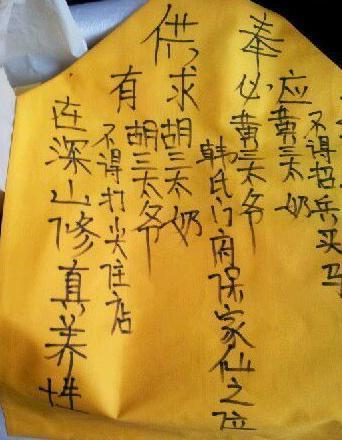 供奉
有求必应
不得招兵买马
黄三太奶
黄三太爷
韩氏门府保家仙之位
胡三太奶
胡三太爷
不得打尖住店
连深山修真养性